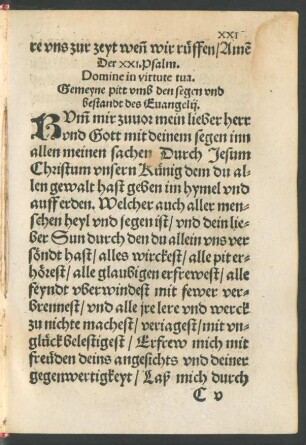 XXI
re vns zur zeyt wen̄ wir růffen/Amē
Der XXI. Psalm.
Domine in virtute tua.
Gemeyne pitt vmb den segen vnd
bestandt des Euangelij.
KUm̄ mir zuuor mein lieber herr
vnd Gott mit deinem segen inn
allen meinen sachen Durch Jesum
Christum vnsern Künig dem du al
len gewalt hast geben im hymel vnd
auff erden. Welcher auch aller men-
schen heyl vnd segen ist/ vnd dein lie-
ber Sun durch den du allein vns ver
söndt hast/ alles wirckest/ alle pit er-
hörest/ alle glaubigen erfrewest/ alle
feyndt vberwindest mit fewer ver-
brennest/ vnd alle jre lere vnd werck
zu nichte machest/ veriagest/ mit vn-
glück belestigest/ Erfrew mich mit
freüden deins angesichts vnd deiner
gegenwertigkeyt/ Laß mich durch
C v